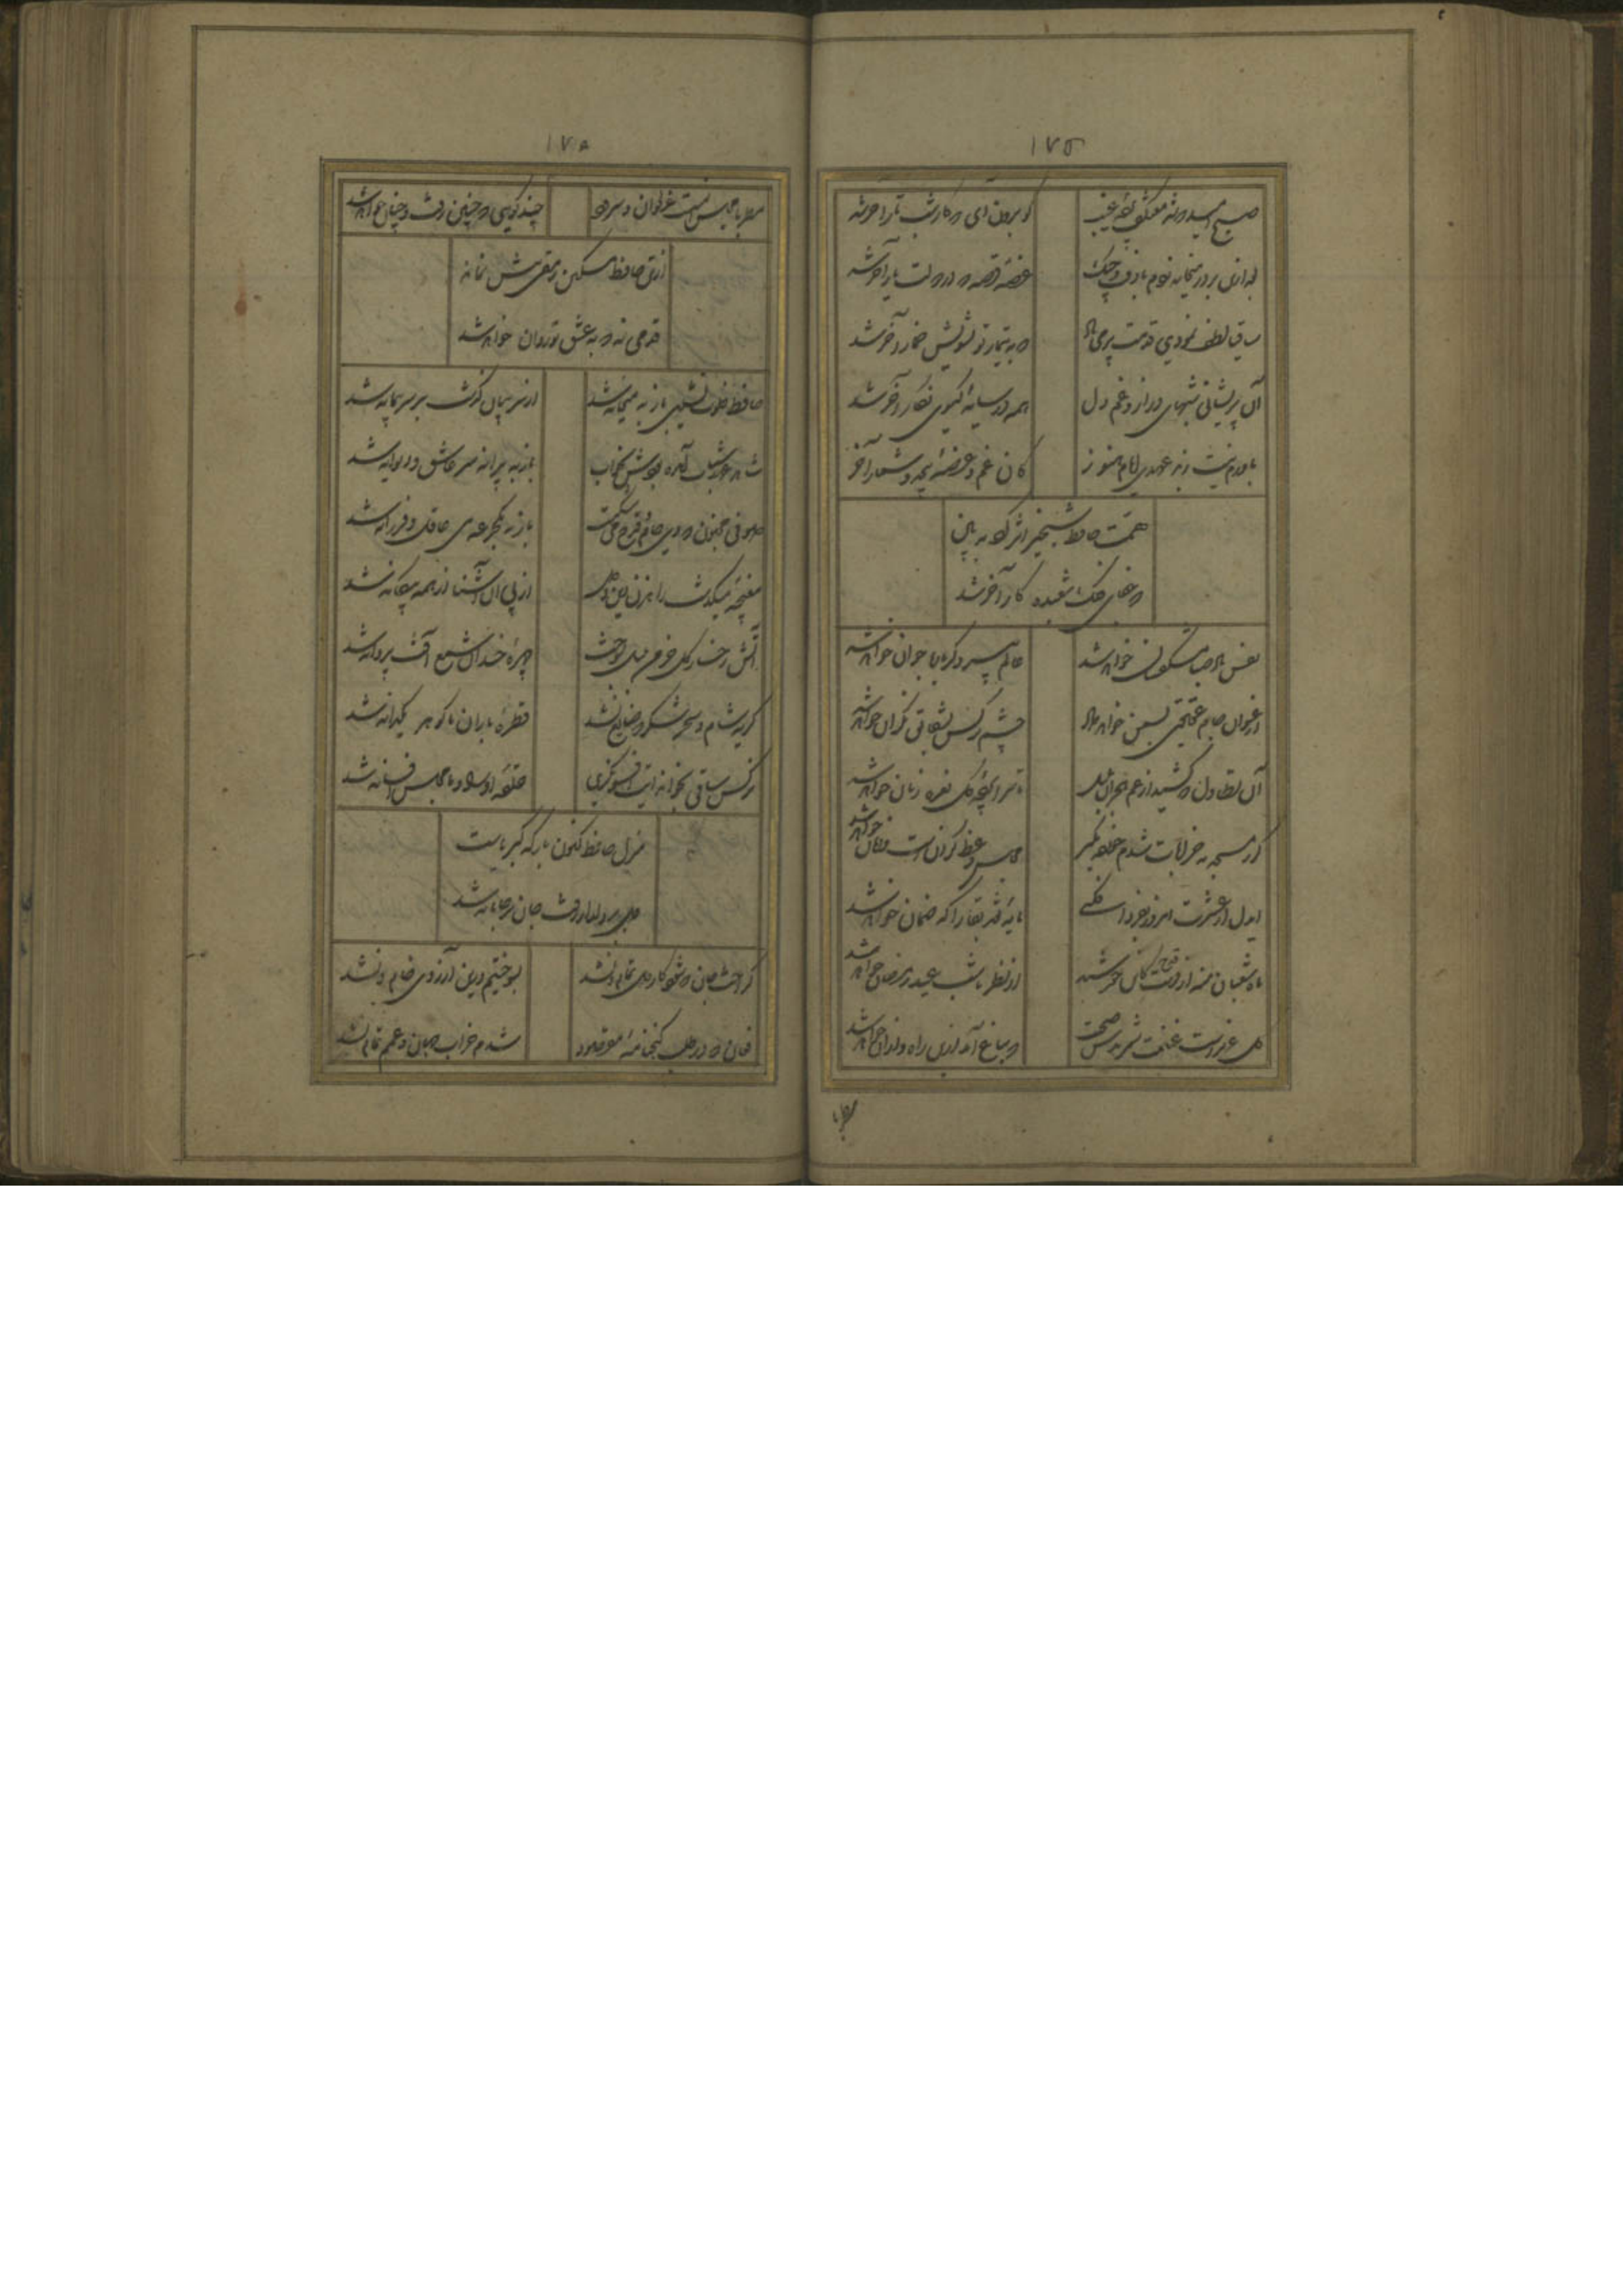 ١٧٥
صبح امید که شد معتکف پرده غیب
گو برون آی که کار شب تار آخر شد
بعد ازین بر در میخانه روم با دف و چنک
غصه قصه که در دولت یار آخر شد
ساقیا لطف نمودی قدحت پر می باد
که به تدبیر تو تشویش خمار آخر شد
آن پریشانی شبهای دراز و غم دل
همه در سایه کیسوی نکار آخر شد
باورم نیست ز بد عهدی ایام هنوز
کان غم و غصه آخر
همت حافظ شبخیز اثر کرد
فلک شعبده کار آخر شد
نفس باد صبا مشک فشان خواهد شد
عالم پیر دکر باره جوان خواهد شد
ارغوان جام عقیقی بسمن خواهد داد
چشم نرکس بشقایق نکران خواهد شد
آن تطاول که کشید از غم هجران بلبل
تا سراپرده کل نعره زنان خواهد شد
کر ز مسجد به خرابات شدم خرده مکیر
مجلس وعظ درازست و زمان خواهد شد
ایدل ار عشرت امروز بفردا فکنی
مایه نقد بقا را که ضمان خواهد شد
ماه شعبان منه از دست قدح کاین خورشید
از نظر تا شب عید رمضان خواهد شد
کل عزیزست غنیمت شمریدش صحبت
که بباغ آمد ازین راه و ازان خواهد شد
مطربا
١٧٥
مطربا مجلس انسست غزل خوان و سرود
چند کویی که چنین رفت و چنان خواهد شد
حافظ مسکین
قدمی نه که به عشق تو روان خواهد شد
حافظ خلوت نشین باز به میخانه شد
از سر پیمان کذشت بر سر پیمانه شد
شاهد عهد شباب آمده بودش بخواب
باز به پیرانه سر عاشق و دیوانه شد
صوفی مجنون که دی جام و قدح می شکست
باز به یکجرعه می عاقل و فرزانه شد
مغبچه میکذشت راهزن دین و دل
از پی آن آشنا از همه بیکانه شد
آتش رخسار کل خرمن بلبل بسوخت
چهره خندان شمع آفت پروانه شد
کریه شام و سحر شکر که ضایع نشد
قطره باران ما کوهر یکدانه شد
نرکس ساقی بخواند آیت افسونکری
حلقه اوراد ما مجلس افسانه شد
منزل حافظ کنون بارکه کبریاست
دل بر دلدار رفت جان بر جانانه شد
کداخت جان که شود کار دل تمام و نشد
بسوختیم درین آرزوی خام و نشد
فغان که در طلب کنجنامه مقصود
شدم خراب جهان و غم تمام نشد